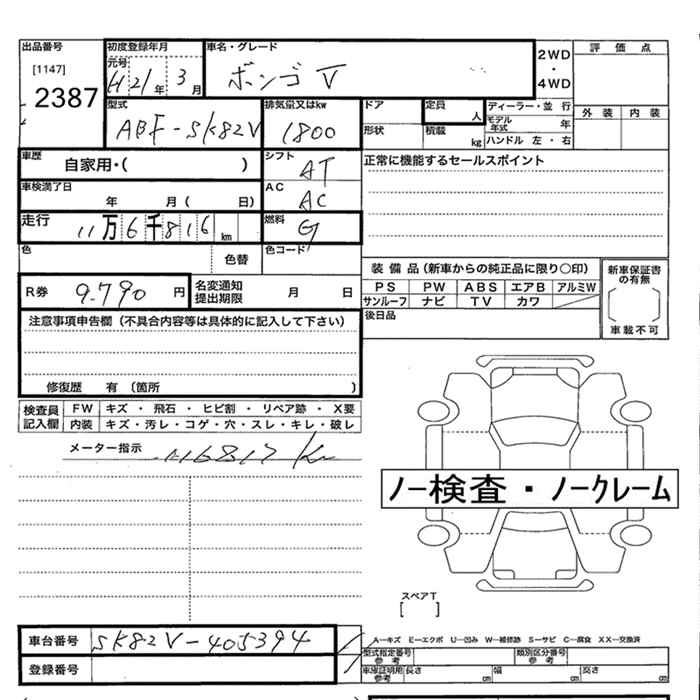 出品番号 初度登録年月 車名・グレード 2WD・4WD 評価点
[1147] 元号 H21年 3月 ボンゴ V
2387 型式 排気量又はkw ドア 定員 人 ディーラー・並行 外装 内装
ABF-SK82V 1800 形状 積載 kg モデル年式 年
ハンドル 左・右
車歴 自家用・( ) シフト AT 正常に機能するセールスポイント
車検満了日 年 月( 日) AC AC
走行 11万6千816km 燃料 G
色 色替 色コード
装備品(新車からの純正品に限り○印) 新車保証書の有無
R券 9.790円 名変通知提出期限 月 日 PS PW ABS エアB アルミW
サンルーフ ナビ TV カワ
注意事項申告欄(不具合内容等は具体的に記入して下さい) 後日品 車載不可
修復歴 有(箇所 )
検査員記入欄 FW キズ・飛石・ヒビ割・リペア跡・X要
内装 キズ・汚レ・コゲ・穴・スレ・キレ・破レ
メーター指示 116817 Km
ノー検査・ノークレーム
スペアT
[ ]
車台番号 SK82V-405394 A―キズ E―エクボ U―凹み W―補修跡 S―サビ C―腐食 XX―交換済
型式指定番号 参考 類別区分番号 参考
登録番号 車庫証明用 参考 長さ cm 幅 cm 高さ cm